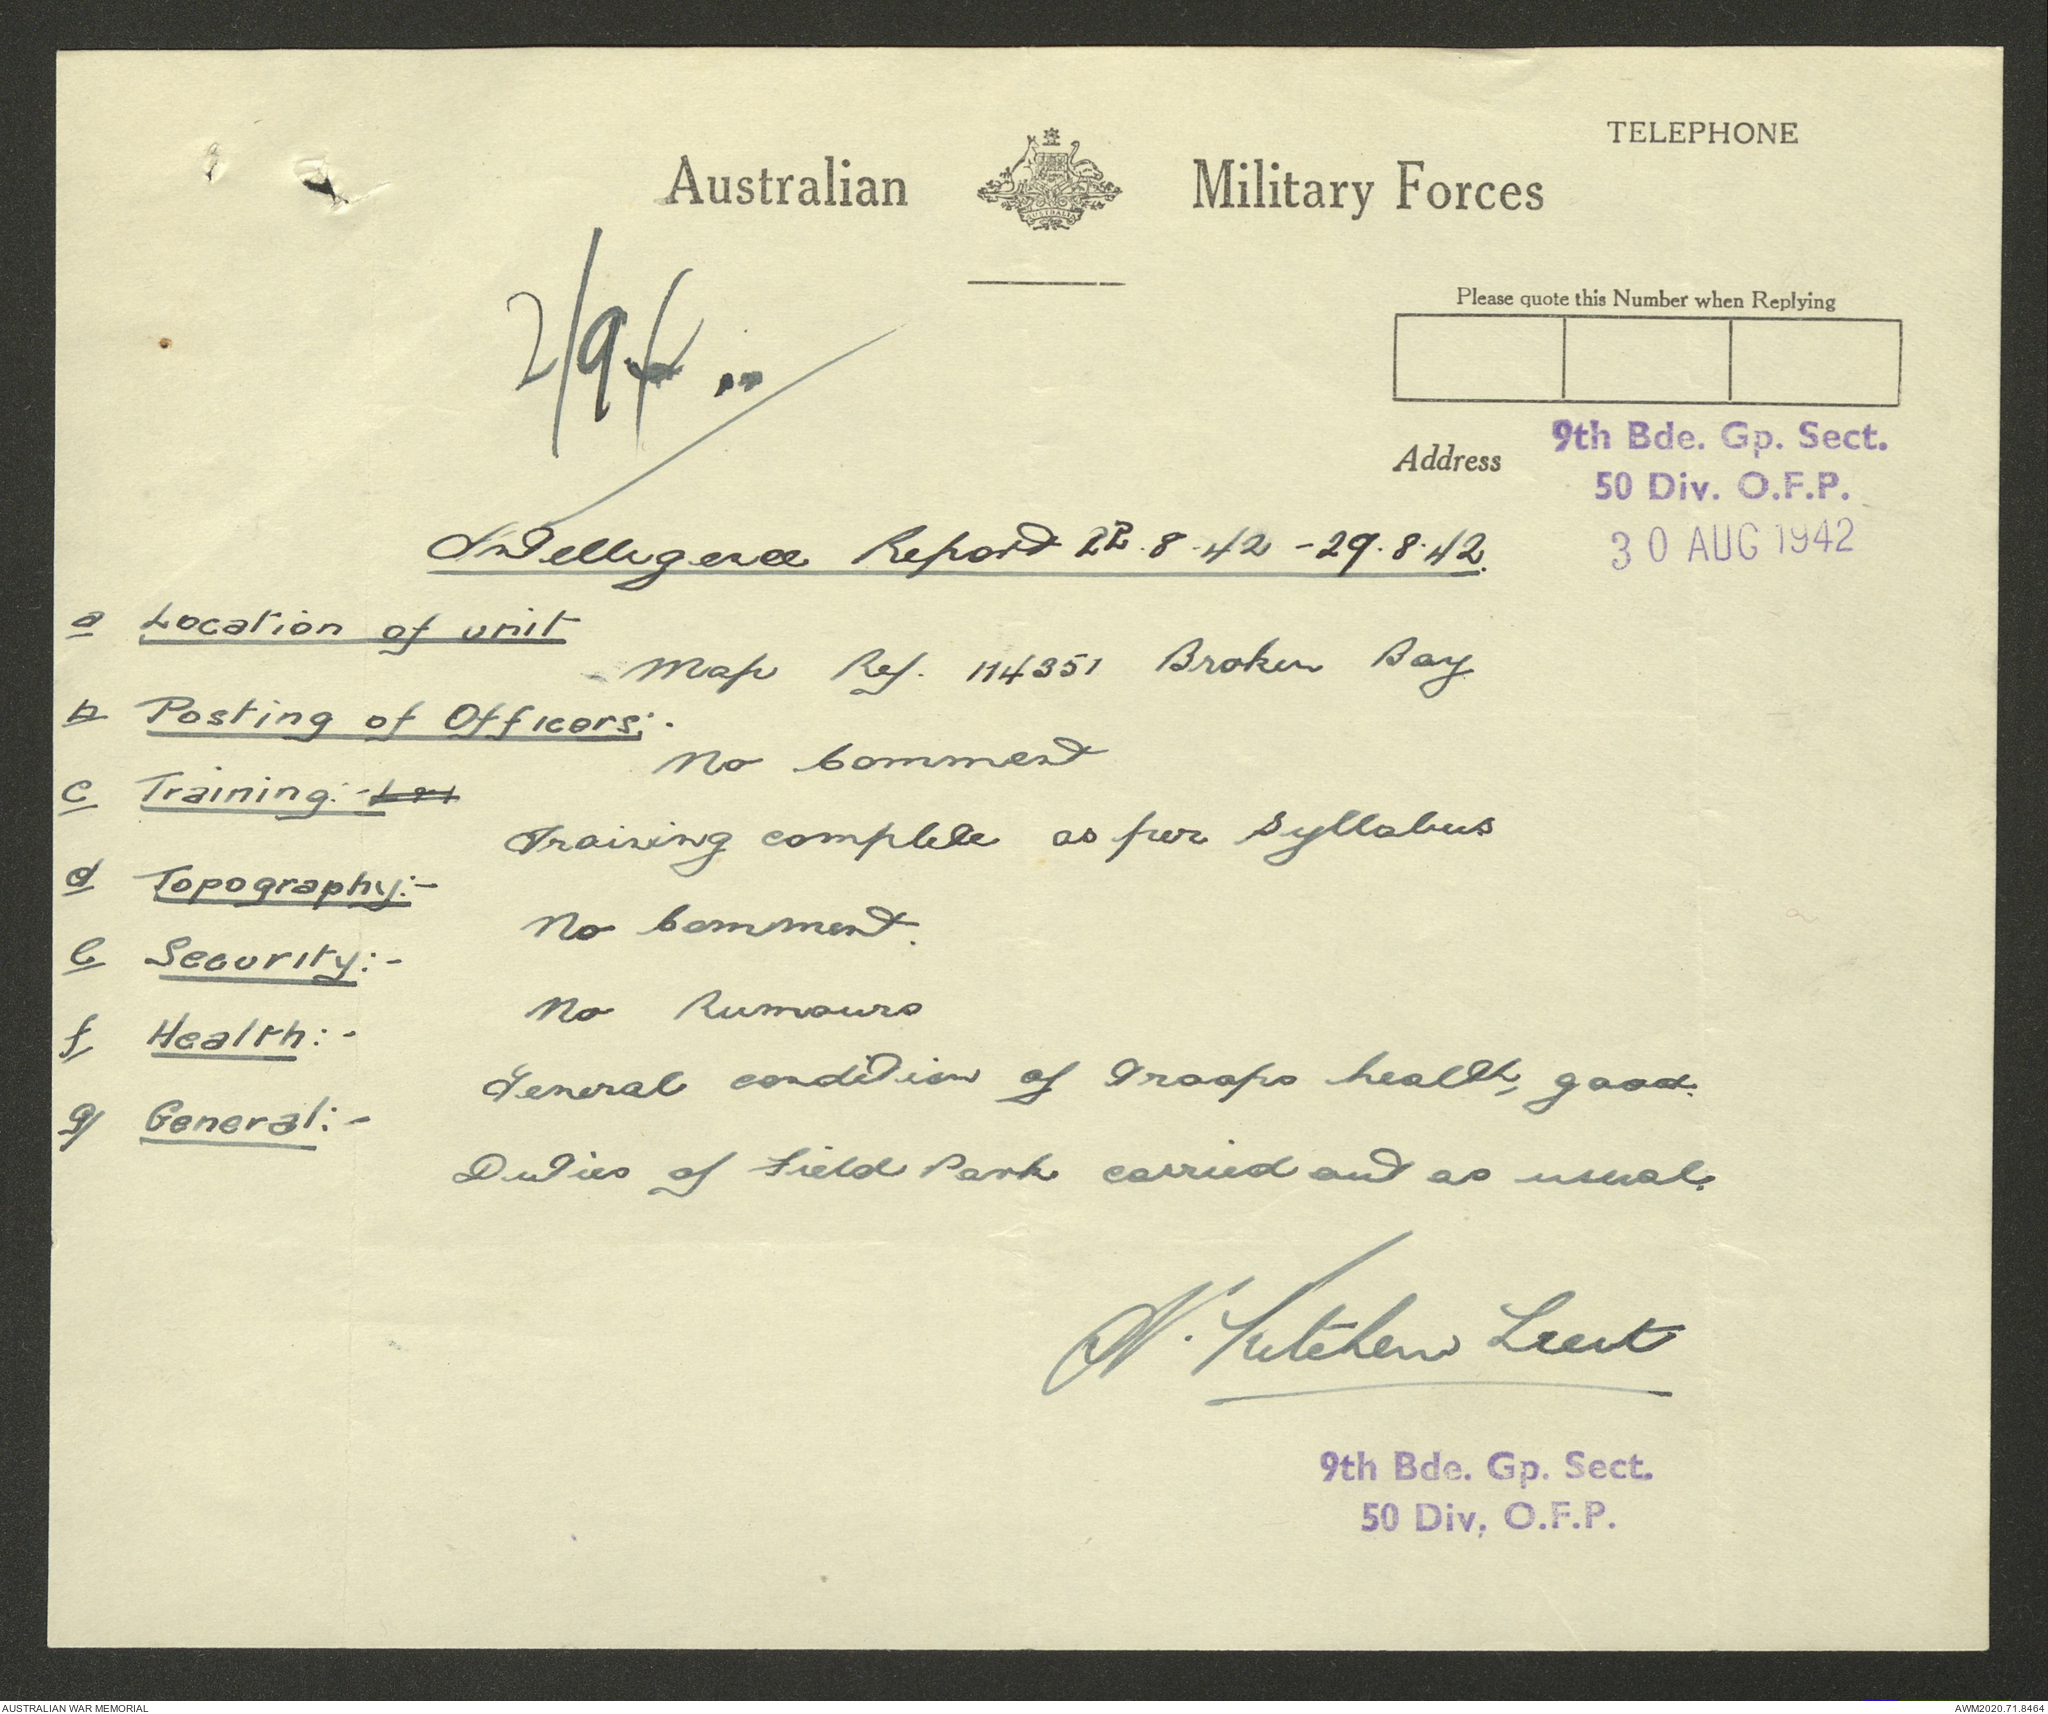 TELEPHONE
Australian Military Forces
AUSTRALIA
Please quote this Number when Replying
2/9
Address
9th Bde. Gp. Sect.
50 Div. O.F.P.
30 AUG 1942
Intelligence Report 22.8.42 - 29.8.42.
a Location of unit
Map Ref. 114351 Broken Bay
b Posting of Officers:-
No Comment
c Training:-
Training complete as per Syllabus
d Topography:-
No Comment.
e Security:-
No Rumours
f Health:-
General condition of Troops health, good.
g General:-
Duties of Field Park carried out as usual.
N. Kitchen Lieut
9th Bde. Gp. Sect.
50 Div, O.F.P.
AUSTRALIAN WAR MEMORIAL
AWM2020.71.8464